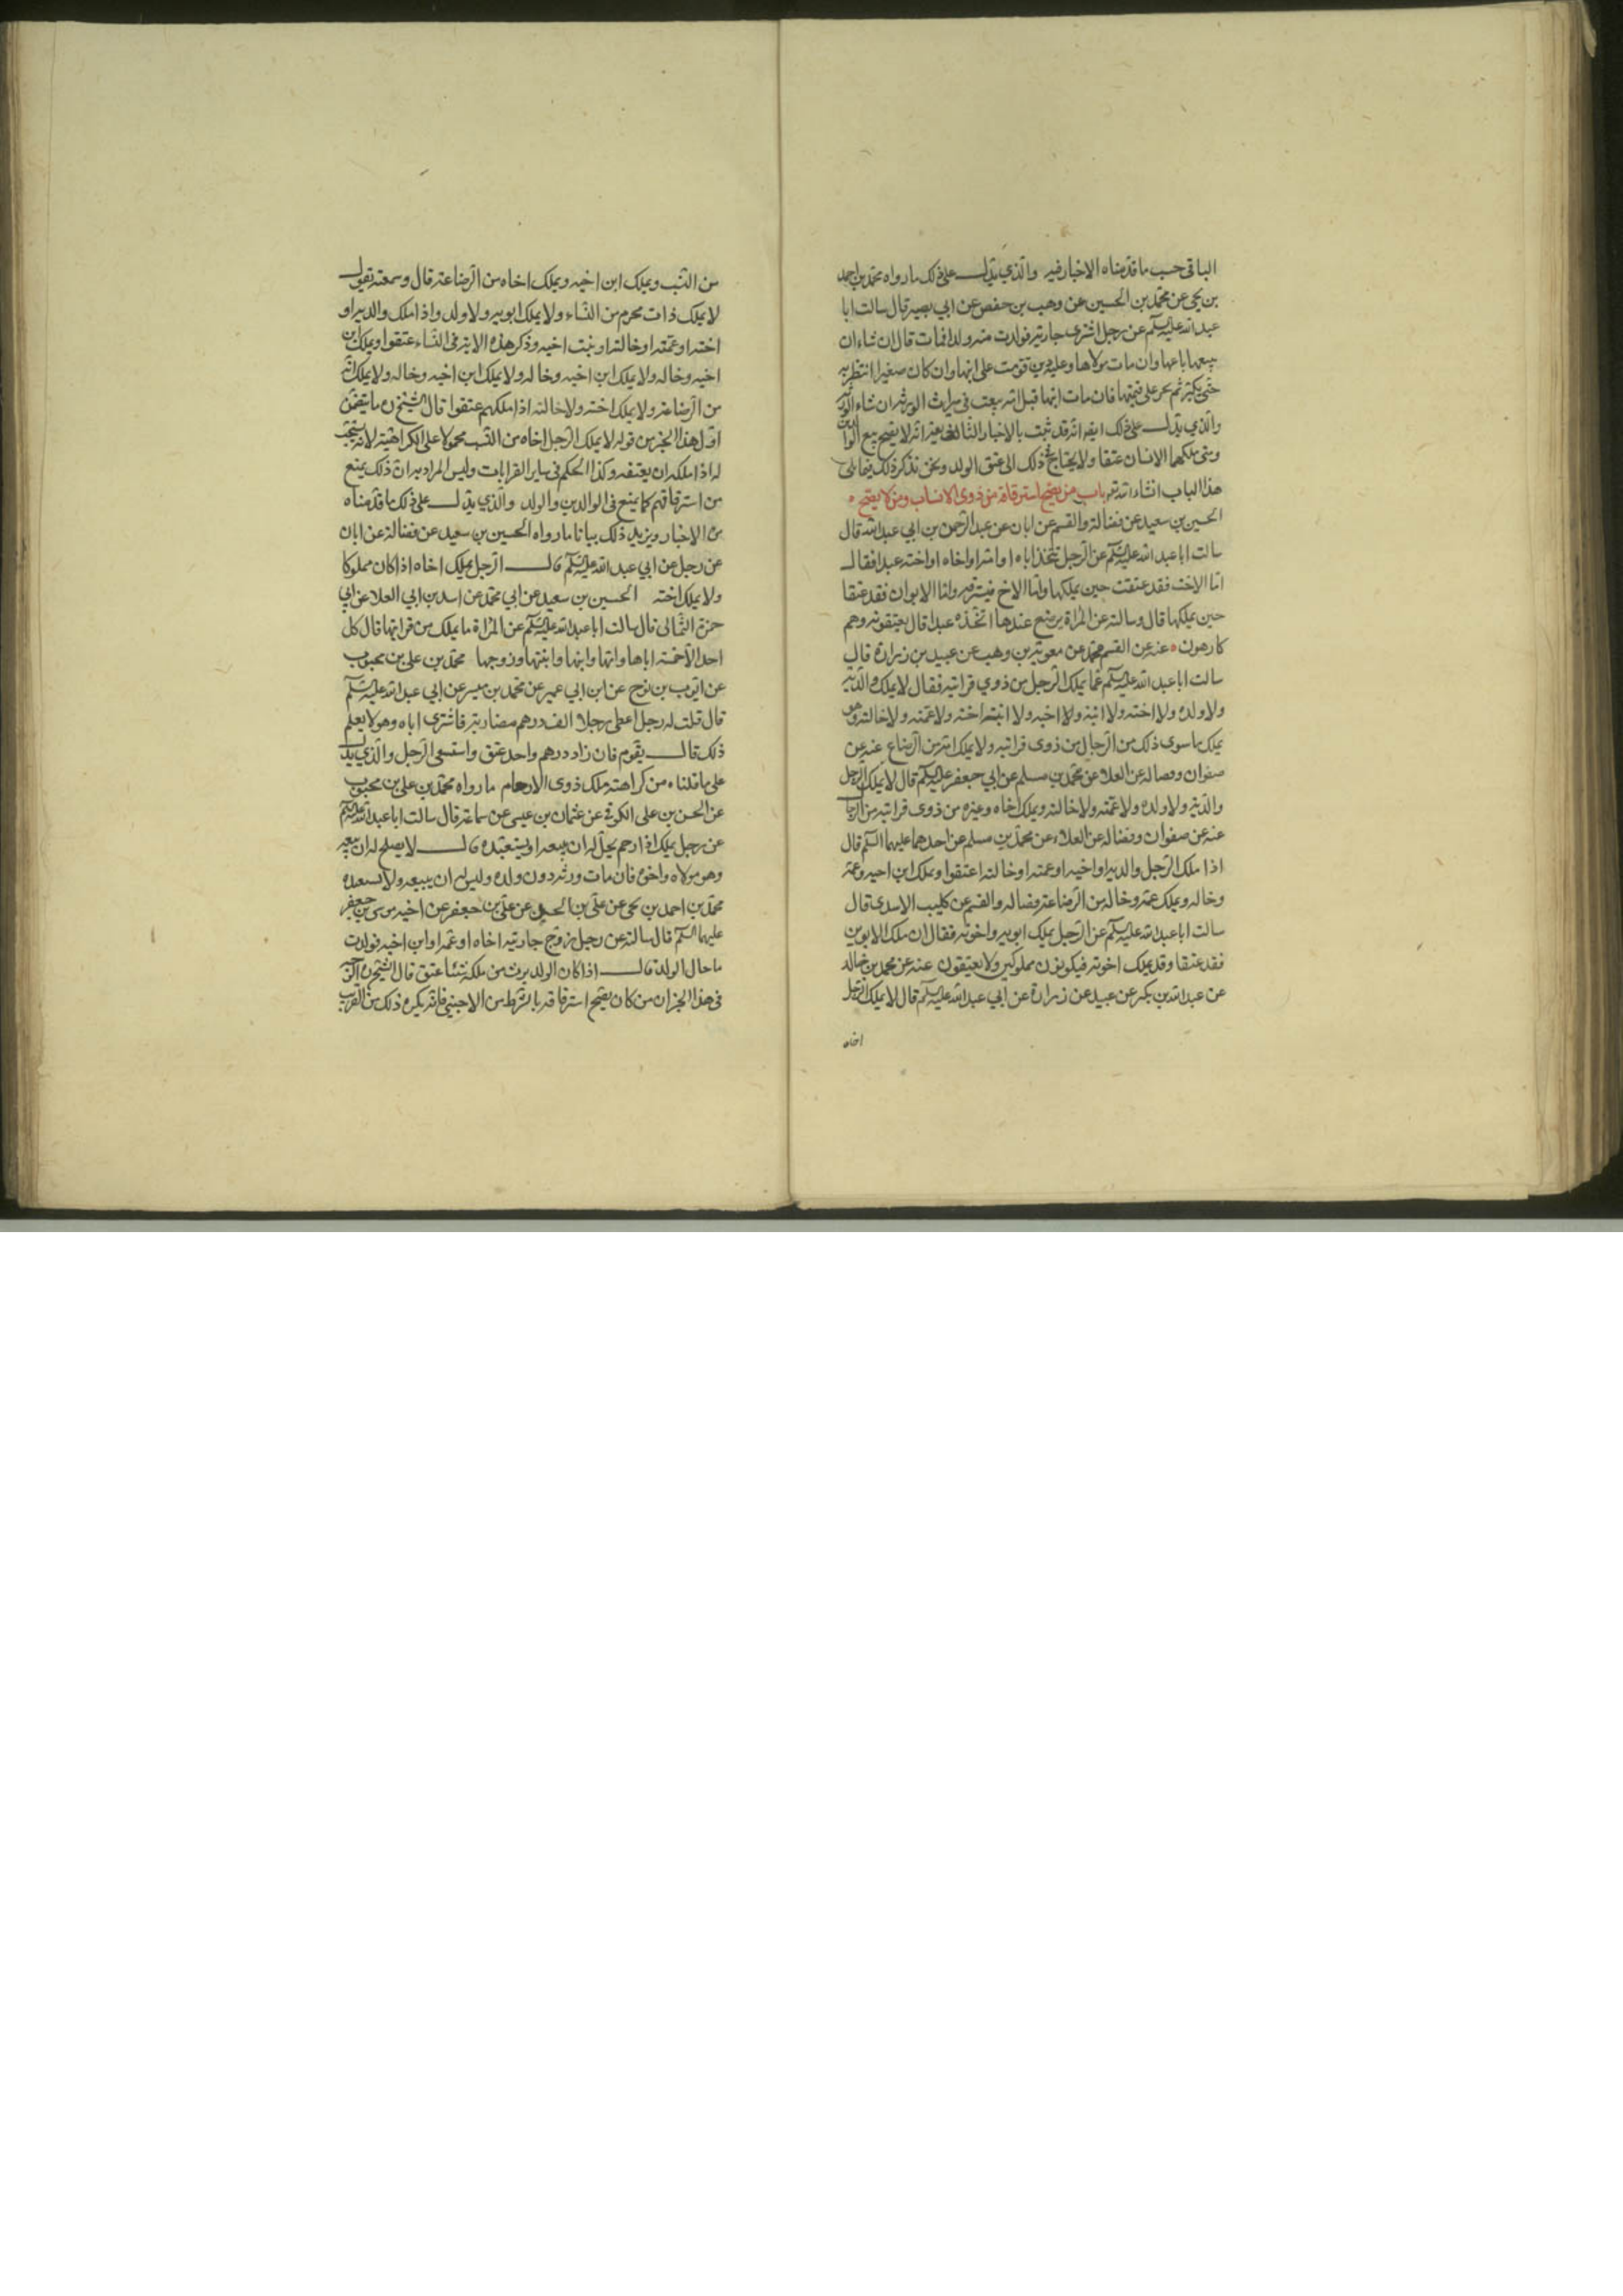 الباقي حسب ما قدمناه الاخبار فيه والذي يدل على ذلك ما رواه محمد بن احمد
بن يحيى عن محمد بن الحسين عن وهب بن حفص عن ابي بصير قال سالت ابا
عبد الله عليه السلم عن رجل اشترى جارية فولدت منه ولدا فمات قال ان شاء ان
يبيعها باعها وان مات مولاها وعليه دين قومت على ابنها وان كان صغيرا انتظر به
حتى يكبر ثم يجبر على قيمتها فان مات ابنها قبل امه بيعت في ميراث الورثة ان شاء الورثة
والذي يدل على ذلك ايضا انه قد ثبت بالاخبار انه لا يصح بيع الوالدين
ومتى ملكهما الانسان عتقا ولا يحتاج في ذلك الى عتق الولد ونحن نذكر ذلك فيما يلي
هذا الباب انشاء الله تعالى باب من يصح استرقاقه من ذوي الانساب ومن لا يصح
الحسين بن سعيد عن فضالة والقسم عن ابان عن عبد الرحمن بن ابي عبد الله قال
سالت ابا عبد الله عليه السلم عن الرجل يتخذ اباه او امه او اخاه او اخته عبدا فقال
اما الاخت فقد عتقت حين يملكها واما الاخ فيسترقه واما الابوان فقد عتقا
حين يملكها قال وسالته عن المراة ترضع عندها اتخذه عبدا قال يعتقونه وهم
كارهون عنه عن القسم محمد عن معوية بن وهب عن عبيد بن زرارة قال
سالت ابا عبد الله عليه السلم عما يملك الرجل من ذوي قرابته فقال لا يملك والديه
ولا ولده ولا اخته ولا ابنة ولا اخيه ولا ابنة اخته ولا عمته ولا خالته وهو
يملك ما سوى ذلك من الرجال من ذوى قرابته ولا يملك امه من الرضاع عنه عن
صفوان وفضالة عن العلا عن محمد بن مسلم عن ابي جعفر عليه السلم قال لا يملك الرجل
والديه ولا ولده ولا عمته ولا خالته ويملك اخاه وغيره من ذوى قرابته من الرجال
عنه عن صفوان وفضالة عن العلاء عن محمد بن مسلم عن احدهما عليهما السلم قال
اذا ملك الرجل والديه او اخيه او عمته او خالته اعتقوا ويملك ابن اخيه وعمه
وخاله ويملك عمه وخاله من الرضاعة فضاله والقسم عن كليب الاسدي قال
سالت ابا عبد الله عليه السلم عن الرجل يملك ابويه واخوته فقال ان ملك الابوين
فقد عتقا وقد يملك اخوته فيكونون مملوكين ولا يعتقون عنه عن محمد بن خالد
عن عبد الله بن بكير عن عبيد عن زرارة عن ابي عبد الله عليه السلم قال لا يملك الرجل
اخاه
من النسب ويملك ابن اخيه ويملك اخاه من الرضاعة قال وسمعته يقول
لا يملك ذات محرم من النساء ولا يملك ابويه ولا ولد واذا ملك والديه او
اخته او عمته او خالته او بنت اخيه وذكر هذه الاية في النساء عتقوا ويملك ابن
اخيه وخاله ولا يملك ابن اخيه وخاله ولا يملك ابن اخيه وخاله ولا يملك امه
من الرضاعة ولا يملك اخته ولا خالته اذا ملكهم عتقوا قال الشيخ ره ما يتضمن
اول هذا الخبر من قوله لا يملك الرجل اخاه من النسب محمولا على الكراهية لانه يستحب
له اذا ملكه ان يعتقه وكذا الحكم في ساير القرابات وليس المراد به ان ذلك يمنع
من استرقاقهم كما يمنع في الوالدين والولد والذي يدل على ذلك ما قدمناه
من الاخبار ويزيد ذلك بيانا ما رواه الحسين بن سعيد عن فضالة عن ابان
عن رجل عن ابي عبد الله عليه السلم قال الرجل يملك اخاه اذا كان مملوكا
ولا يملك اخته الحسين بن سعيد عن ابي محمد عن اسد بن ابي العلا عن ابي
حمزة الثمالى قال سالت ابا عبد الله عليه السلم عن المراة ما يملك من قرابتها قال كل
احد الا خمسة اباها وامها وابنها وابنتها وزوجها محمد بن علي بن محبوب
عن ايوب بن نوح عن ابن ابي عمير عن محمد بن ميسر عن ابي عبد الله عليه السلم
قال قلت له رجل اعطى رجلا الف درهم مضاربة فاشترى اباه وهو لا يعلم
ذلك قال يقوم فان زاد درهم واحد عتق واستسعى الرجل والذي يدل
على ما قلناه من كراهته ملك ذوى الارحام ما رواه محمد بن علي بن محبوب
عن الحسن بن على الكوفي عن عثمان بن عيسى عن سماعة قال سالت ابا عبد الله عليه السلم
عن رجل يملك ذا رحم يحل له ان يبيعه او يستعبده قال لا يصلح له ان يبيعه
وهو مولاه واخوه فان مات ورثه دون ولده وليس له ان يبيعه ولا يستعبده
محمد بن احمد بن يحيى عن علي بن الحسين عن علي بن جعفر عن اخيه موسى بن جعفر
عليهما السلم قال سالته عن رجل زوج جاريته اخاه او عمه او ابن اخيه فولدت
ما حال الولد قال اذا كان الولد يرث من ملكه شيئا عتق قال الشيخ ره الوجه
في هذا الخبر ان من كان يصح استرقاقه بالشرط من الاجنبي فانه يكره ذلك من القريب